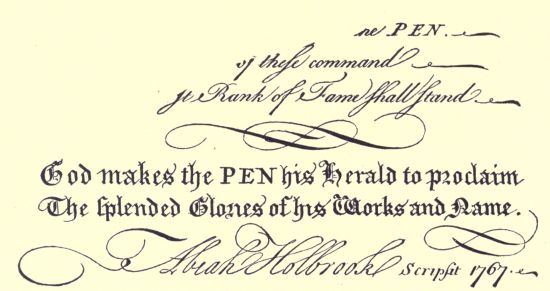 ne PEN.
of theſe command
st Rank of Fame ſhall ſtand
God makes the PEN his Herald to proclaim
The ſplended Glories of his Works and Name.
Abiah Holbrook Scripſit 1767.